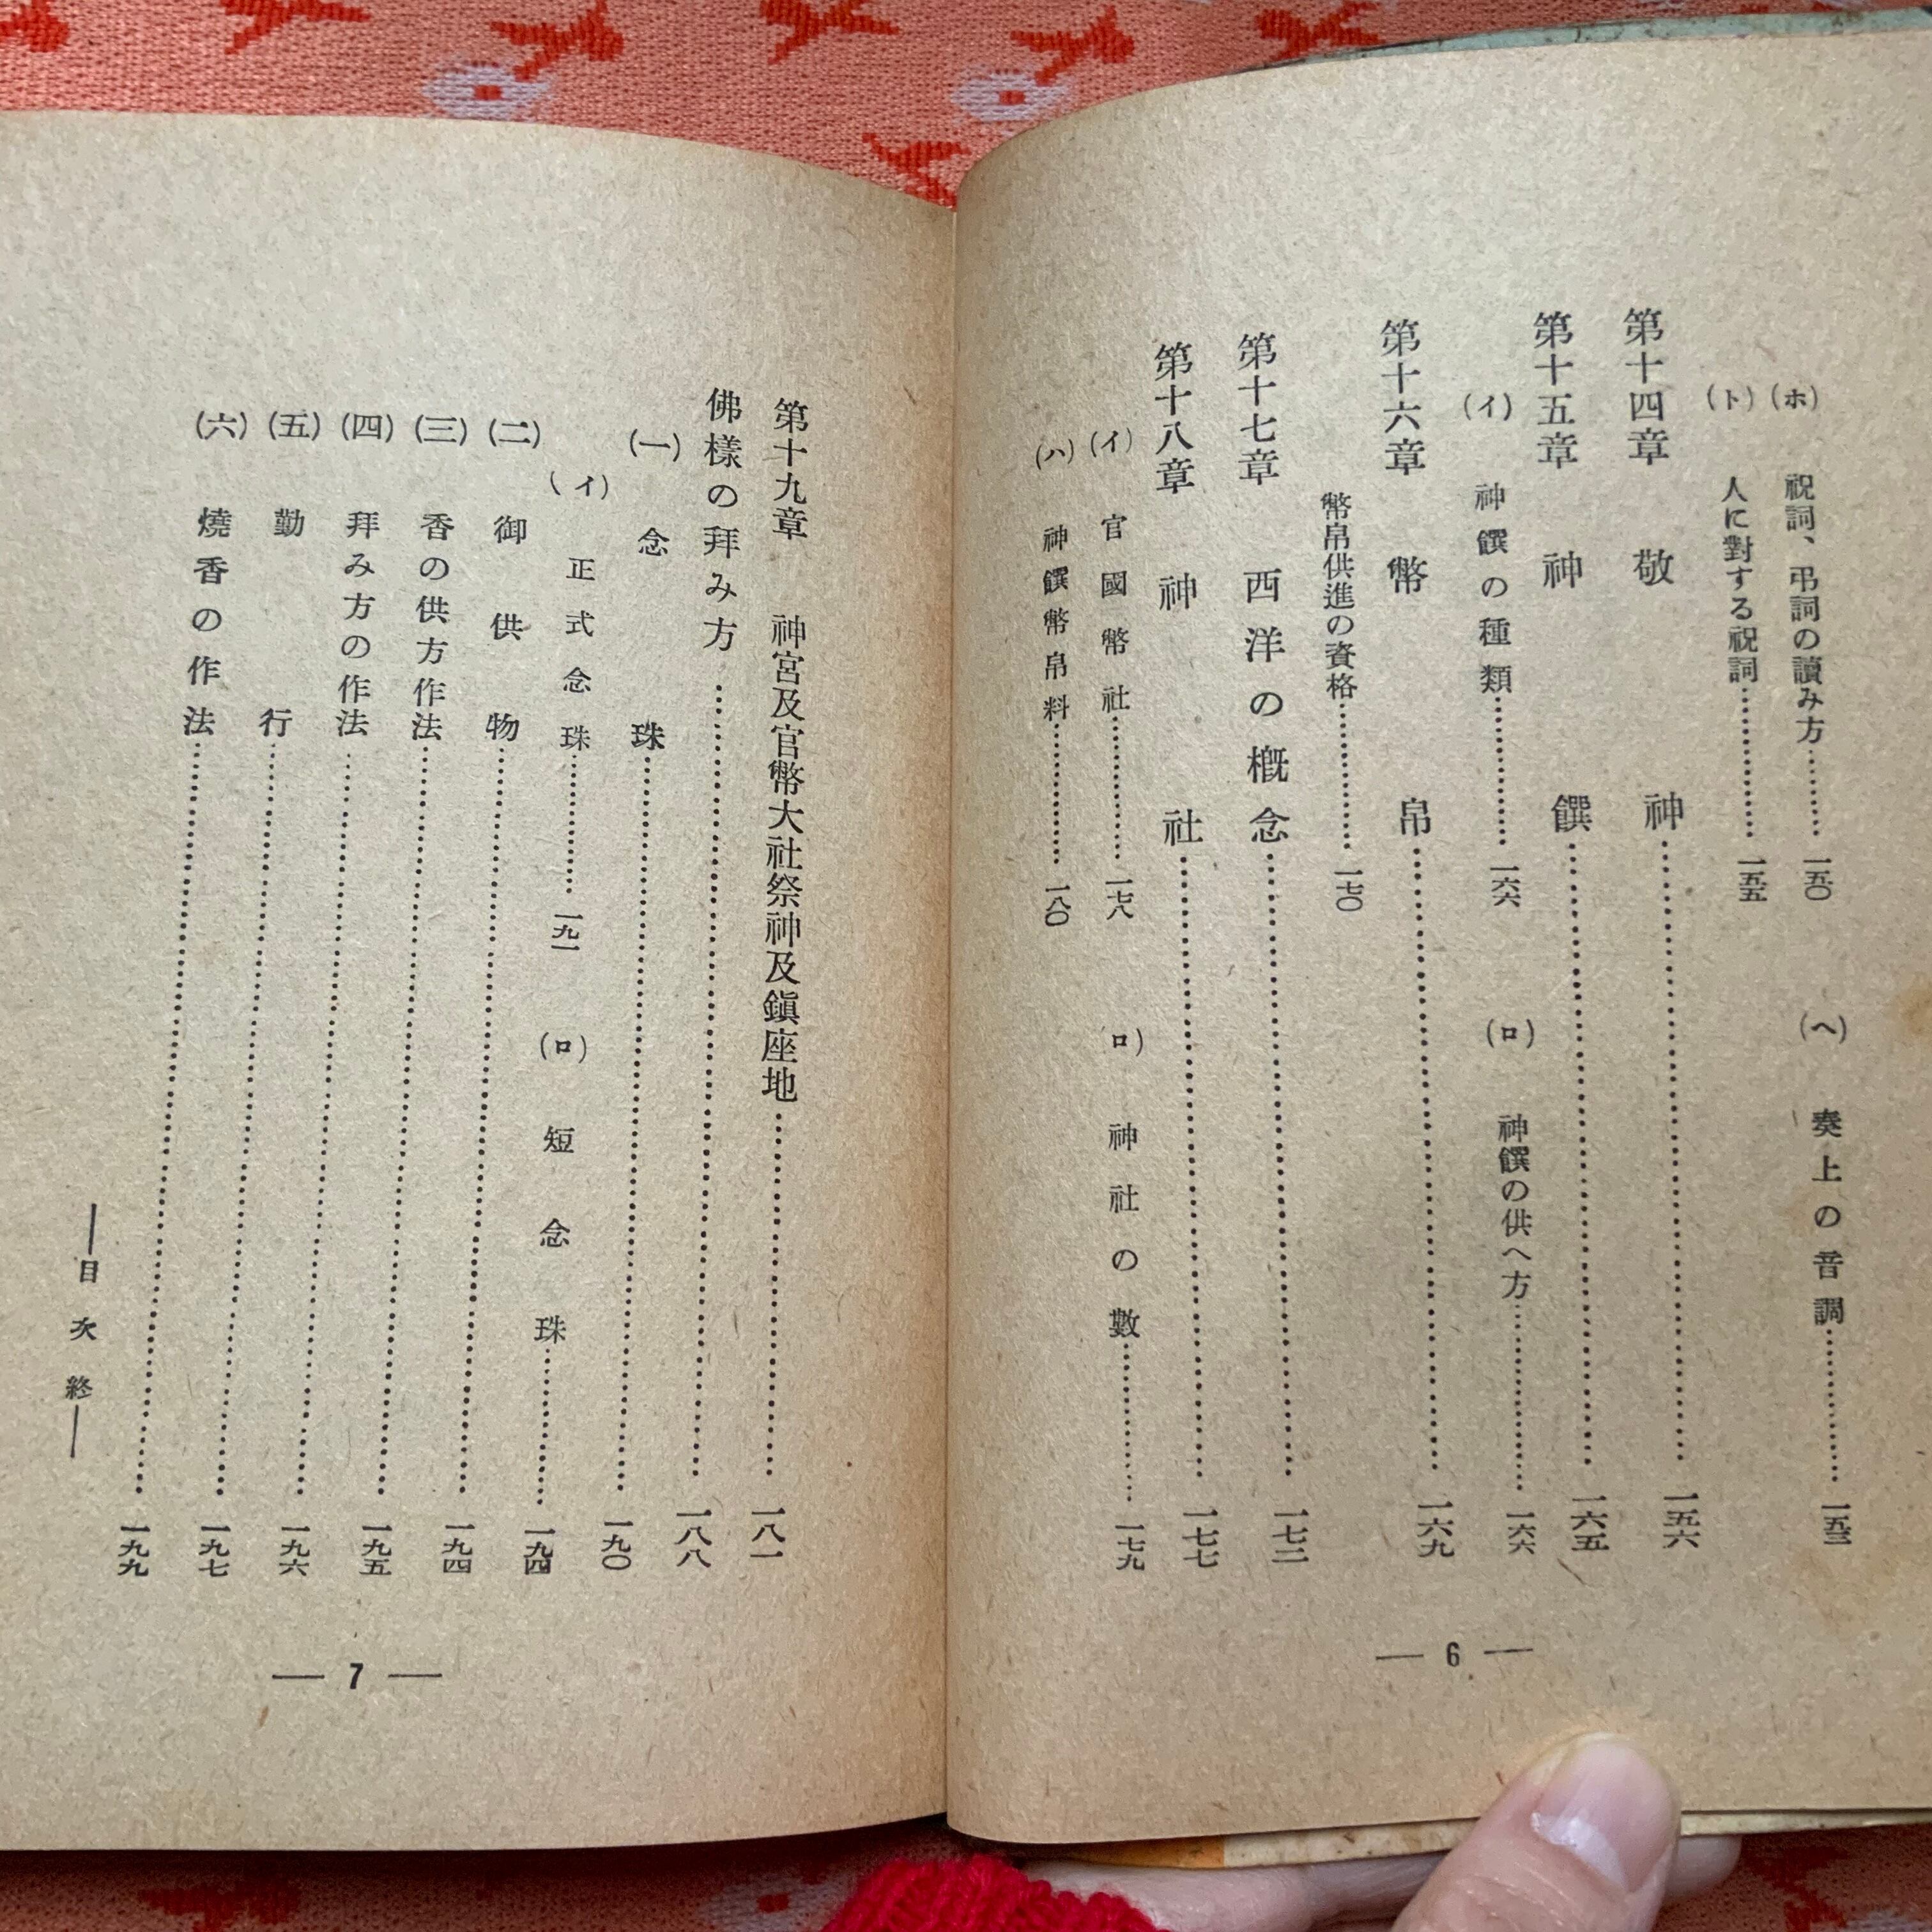 (ホ) 祝詞、弔詞の讀み方………一五〇 (ヘ) 奏上の音調…………一五三
(ト) 人に對する祝詞…………一五五
第十四章 敬神……………………一五六
第十五章 神饌……………………一六五
(イ) 神饌の種類…………一六六 (ロ) 神饌の供へ方…………一六六
第十六章 幣帛……………………一六九
幣帛供進の資格…………一七〇
第十七章 西洋の概念……………………一七二
第十八章 神社……………………一七七
(イ) 官國幣社…………一七八 (ロ) 神社の數…………一七九
(ハ) 神饌幣帛料…………一八〇
— 6 —
第十九章 神宮及官幣大社祭神及鎭座地……………………一八一
佛樣の拜み方……………………一八八
(一) 念珠……………………一九〇
(イ) 正式念珠…………一九一 (ロ) 短念珠…………一九四
(二) 御供物……………………一九四
(三) 香の供方作法……………………一九五
(四) 拜み方の作法……………………一九六
(五) 勤行……………………一九七
(六) 燒香の作法……………………一九九
—目次終—
— 7 —